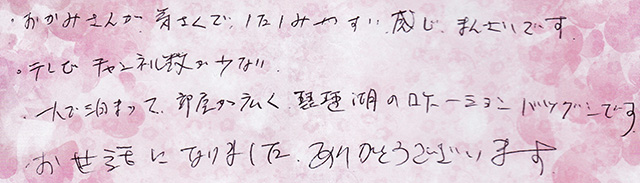 ・おかみさんが、気さくで、したしみやすい感じ、まんぞくです。
・テレビ チャンネル数が少ない。
・一人で泊まって、部屋が広く、琵琶湖のロケーションバツグンです
お世話になりました、ありがとうございます